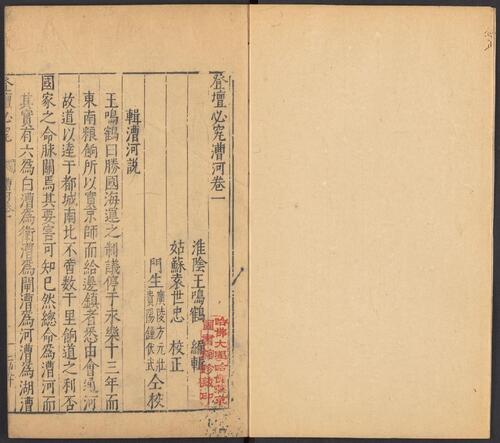 登壇必究漕河卷一
淮陰王鳴鶴 編輯
姑蘇袁世忠 校正
門生廣陵方元壯
貴陽鍾伏武仝校
輯漕河說
王鳴鶴曰勝國海運之制議停于永樂十三年而
東南糧餉所以實京師而給邊鎮者悉由會通河
故道以達于都城南北不啻數千里餉道之利否
國家之命脉關焉其要害可知已然總命為漕河而
其實有六為白漕為衛漕為閘漕為河漕為湖漕
登壇必究
哈佛大學哈佛燕京
圖書館珍藏印